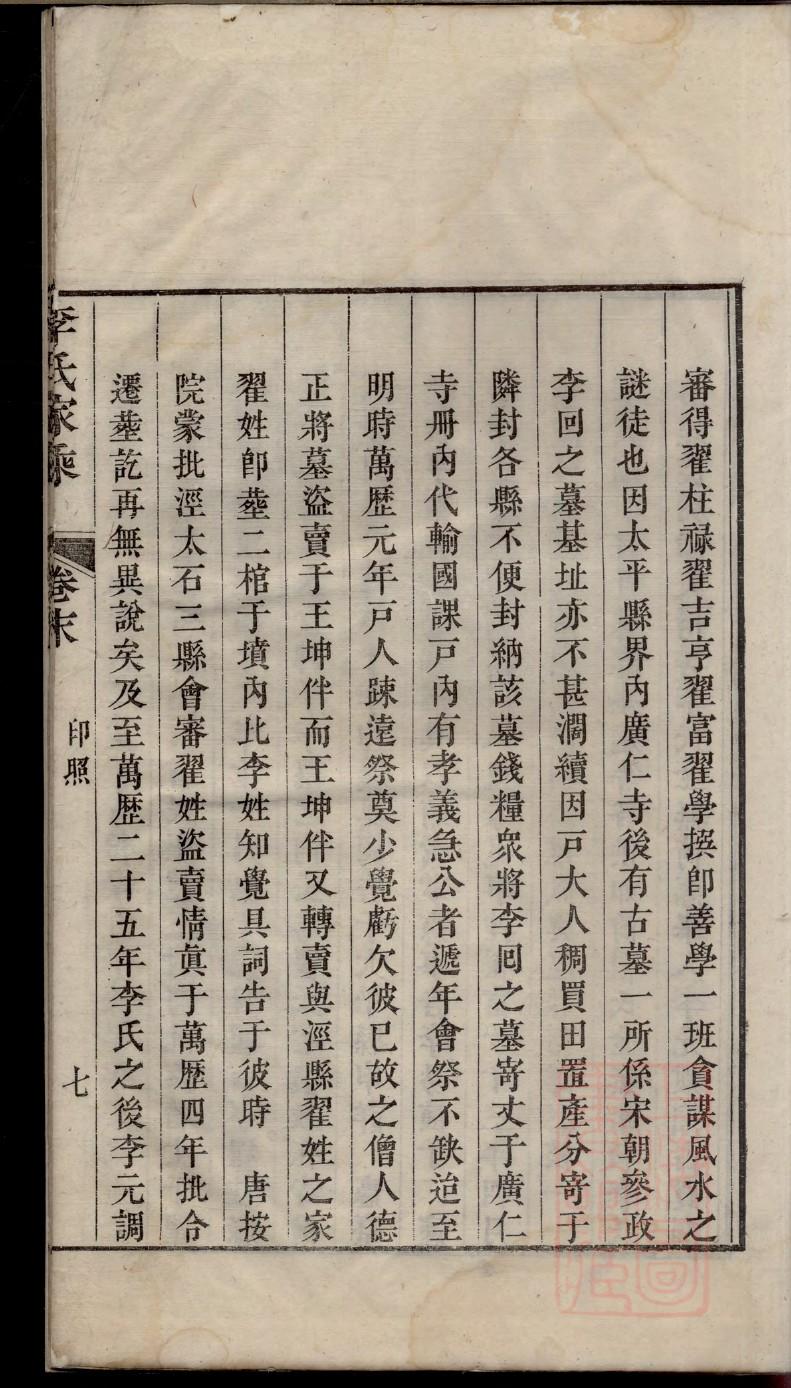 審得翟柱祿翟吉亨翟富翟學撰卽善學一班貪謀風水之
謎徒也因太平縣界內廣仁寺後有古墓一所係宋朝參政
李回之墓基址亦不甚濶續因戸大人稠買田置產分寄于
隣封各縣不便封納該墓錢糧衆將李囘之墓寄丈于廣仁
寺冊內代輸國課戸內有孝義急公者遞年會祭不缺迨至
明時萬歷元年戸人踈遠祭奠少覺虧欠彼已故之僧人德
正將墓盜賣于王坤伴而王坤伴又轉賣與涇縣翟姓之家
翟姓卽塟二棺于墳內比李姓知覺具詞告于彼時　唐按
院蒙批涇太石三縣會審翟姓盜賣情眞于萬歷四年批令
遷塟訖再無異說矣及至萬歷二十五年李氏之後李元調
李氏家乘
卷末
印照
七